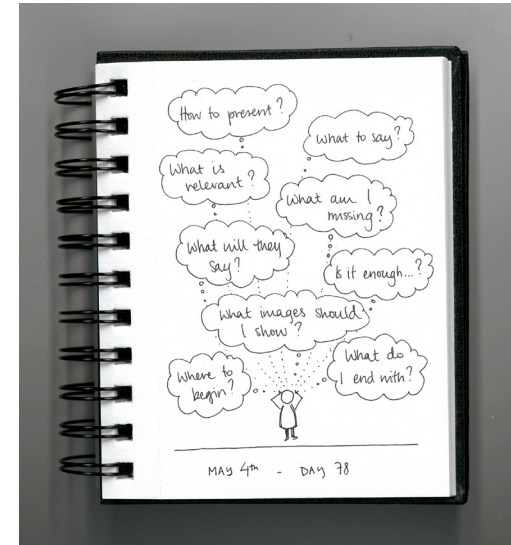 How to present?
What to say?
What is
relevant?
What am I
missing?
What will they
say?
Is it enough...?
What images should
I show?
Where to
begin?
What do
I end with?
MAY 4th - DAY 78